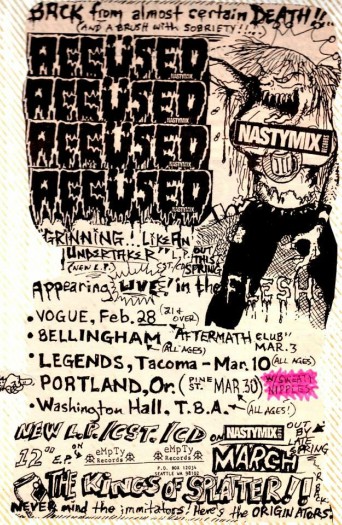 BACK from almost certain DEATH!!..
(AND A BRUSH with SOBRIETY!!...)
ACCÜSED
NASTYMIX
ACCÜSED
NASTYMIX
ACCÜSED
NASTYMIX
ACCÜSED
NASTYMIX
NASTYMIX
"GRINNING... LIKE AN
UNDERTAKER" L.P. OUT THIS SPRING
(NEW L.P.)
Appearing LIVE! in the FLESH
• VOGUE, Feb. 28 (21 & OVER)
• BELLINGHAM "AFTERMATH CLUB"
(ALL AGES) MAR. 3
• LEGENDS, Tacoma - Mar. 10 (ALL AGES)
• PORTLAND, Or. (PINE ST. MAR 30) W/SWEATY NIPPLES
• Washington Hall, T.B.A. (ALL AGES!)
NEW L.P./CST./CD ON NASTYMIX OUT BY LATE SPRING
12" E.P.'s eMpTy Records eMpTy Records MARCH
P.O. BOX 12034
SEATTLE WA 98102
THE KINGS OF SPLATER!!
NEVER mind the immitators! Here's the ORIGINATORS.